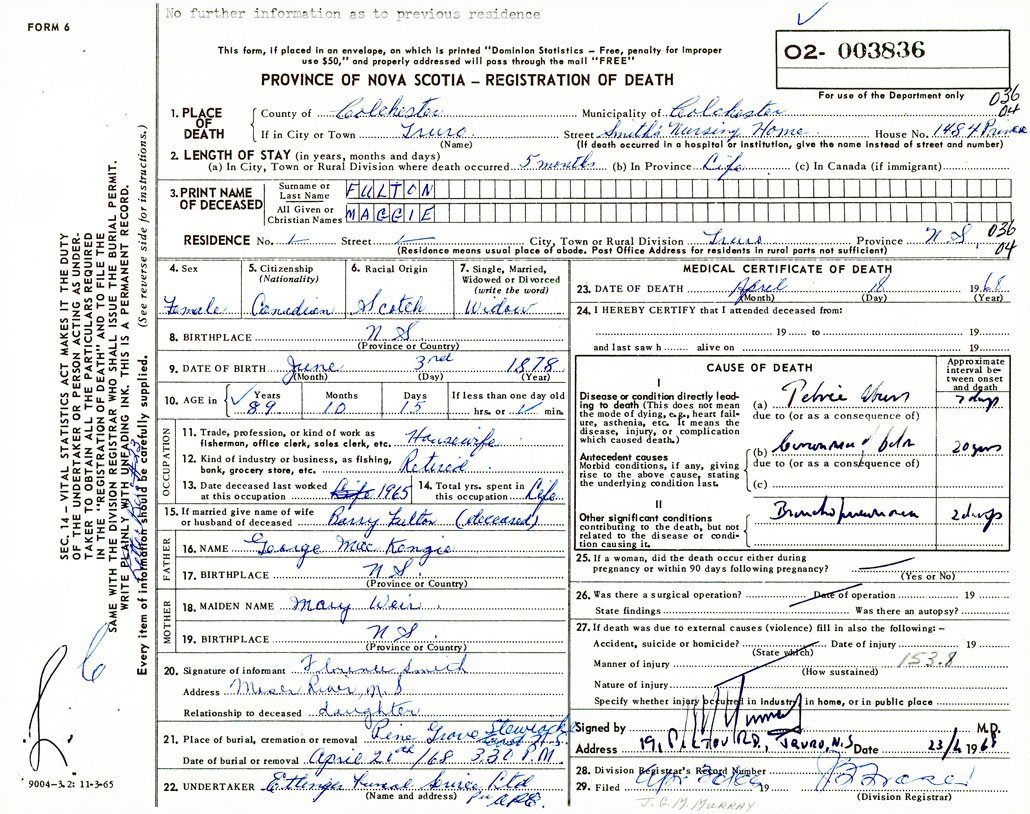 No further information as to previous residence
FORM 6
This form, if placed in an envelope, on which is printed "Dominion Statistics – Free, penalty for improper
use $50," and properly addressed will pass through the mail "FREE"
O2- 003836
PROVINCE OF NOVA SCOTIA – REGISTRATION OF DEATH
For use of the Department only
036
04
1. PLACE OF DEATH
County of Colchester Municipality of Colchester
If in City or Town Truro Street Smith's Nursing Home House No. 1484 Prince
(Name) (If death occurred in a hospital or institution, give the name instead of street and number)
2. LENGTH OF STAY (in years, months and days)
(a) In City, Town or Rural Division where death occurred 5 months (b) In Province Life (c) In Canada (if immigrant)
3. PRINT NAME OF DECEASED
Surname or Last Name FULTON
All Given or Christian Names MAGGIE
RESIDENCE No. Street City, Town or Rural Division Truro Province N S.
036
04
(Residence means usual place of abode. Post Office Address for residents in rural parts not sufficient)
4. Sex
Female
5. Citizenship
(Nationality)
Canadian
6. Racial Origin
Scotch
7. Single, Married,
Widowed or Divorced
(write the word)
Widow
8. BIRTHPLACE N S.
(Province or Country)
9. DATE OF BIRTH June 3rd 1878
(Month) (Day) (Year)
10. AGE in Years Months Days If less than one day old
89 10 15 hrs. or min.
OCCUPATION
11. Trade, profession, or kind of work as
fisherman, office clerk, sales clerk, etc. Housewife
12. Kind of industry or business, as fishing,
bank, grocery store, etc. Retired
13. Date deceased last worked
at this occupation Life 1965
14. Total yrs. spent in
this occupation Life
15. If married give name of wife
or husband of deceased Barry Fulton (deceased)
FATHER
16. NAME George MacKenzie
17. BIRTHPLACE N S
(Province or Country)
MOTHER
18. MAIDEN NAME Mary Weir
19. BIRTHPLACE N S
(Province or Country)
20. Signature of informant Florence Smith
Address Moser River, N.S
Relationship to deceased daughter
21. Place of burial, cremation or removal Pine Grove Stewiacke
East N.S.
Date of burial or removal April 20th /68 3.30 P.M.
22. UNDERTAKER Ettinger Funeral Service Ltd
(Name and address)
MEDICAL CERTIFICATE OF DEATH
23. DATE OF DEATH April 18 1968
(Month) (Day) (Year)
24. I HEREBY CERTIFY that I attended deceased from:
19 to 19
and last saw h alive on 19
CAUSE OF DEATH
Approximate
interval be-
tween onset
and death
I
Disease or condition directly lead-
ing to death (This does not mean
the mode of dying, e.g., heart fail-
ure, asthenia, etc. It means the
disease, injury, or complication
which caused death.)
(a) Pelvic Abscess 7 days
due to (or as a consequence of)
Antecedent causes
Morbid conditions, if any, giving
rise to the above cause, stating
the underlying condition last.
(b) Carcinoma of colon
due to (or as a consequence of)
(c)
II
Other significant conditions
contributing to the death, but not
related to the disease or condi-
tion causing it.
Bronchopneumonia 2 days
25. If a woman, did the death occur either during
pregnancy or within 90 days following pregnancy?
(Yes or No)
26. Was there a surgical operation? Date of operation 19
State findings Was there an autopsy?
27. If death was due to external causes (violence) fill in also the following: –
Accident, suicide or homicide? Date of injury 19
(State which)
Manner of injury 153.8
(How sustained)
Nature of injury
Specify whether injury occurred in industry, in home, or in public place
Signed by M.D.
Address 191 PICTOU RD., TRURO, N.S Date 23/4 1968
28. Division Registrar's Record Number
29. Filed 19
(Division Registrar)
J.G.M. MURRAY
SEC. 14 – VITAL STATISTICS ACT MAKES IT THE DUTY
OF THE UNDERTAKER OR PERSON ACTING AS UNDER-
TAKER TO OBTAIN ALL THE PARTICULARS REQUIRED
IN THE "REGISTRATION OF DEATH" AND TO FILE THE
SAME WITH THE DIVISION REGISTRAR WHO SHALL ISSUE THE BURIAL PERMIT.
WRITE PLAINLY WITH UNFADING INK. THIS IS A PERMANENT RECORD.
Every item of information should be carefully supplied. (See reverse side for instructions.)
9004–3.2: 11-3-65